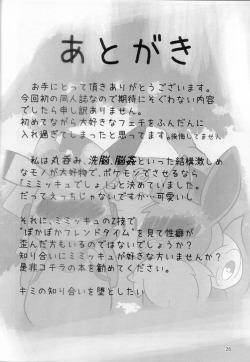 あとがき
お手にとって頂きありがとうございます。
今回初の同人誌なので期待にそぐわない内容
でしたら申し訳ありません。
初めてながら大好きなフェチをふんだんに
入れ過ぎてしまったと思ってます。後悔してません
私は丸呑み、洗脳、脳姦といった結構激しめ
なモノが大好物で、ポケモンでさせるなら
「ミミッキュでしょ！」と決めていました。
だってえっちじゃないですか…可愛いし
それに、ミミッキュのZ技で
"ぽかぽかフレンドタイム"を見て性癖が
歪んだ方もいるのではないでしょうか？
知り合いにミミッキュが好きな方いませんか？
是非コチラの本を勧めてください。
キミの知り合いを堕としたい
26